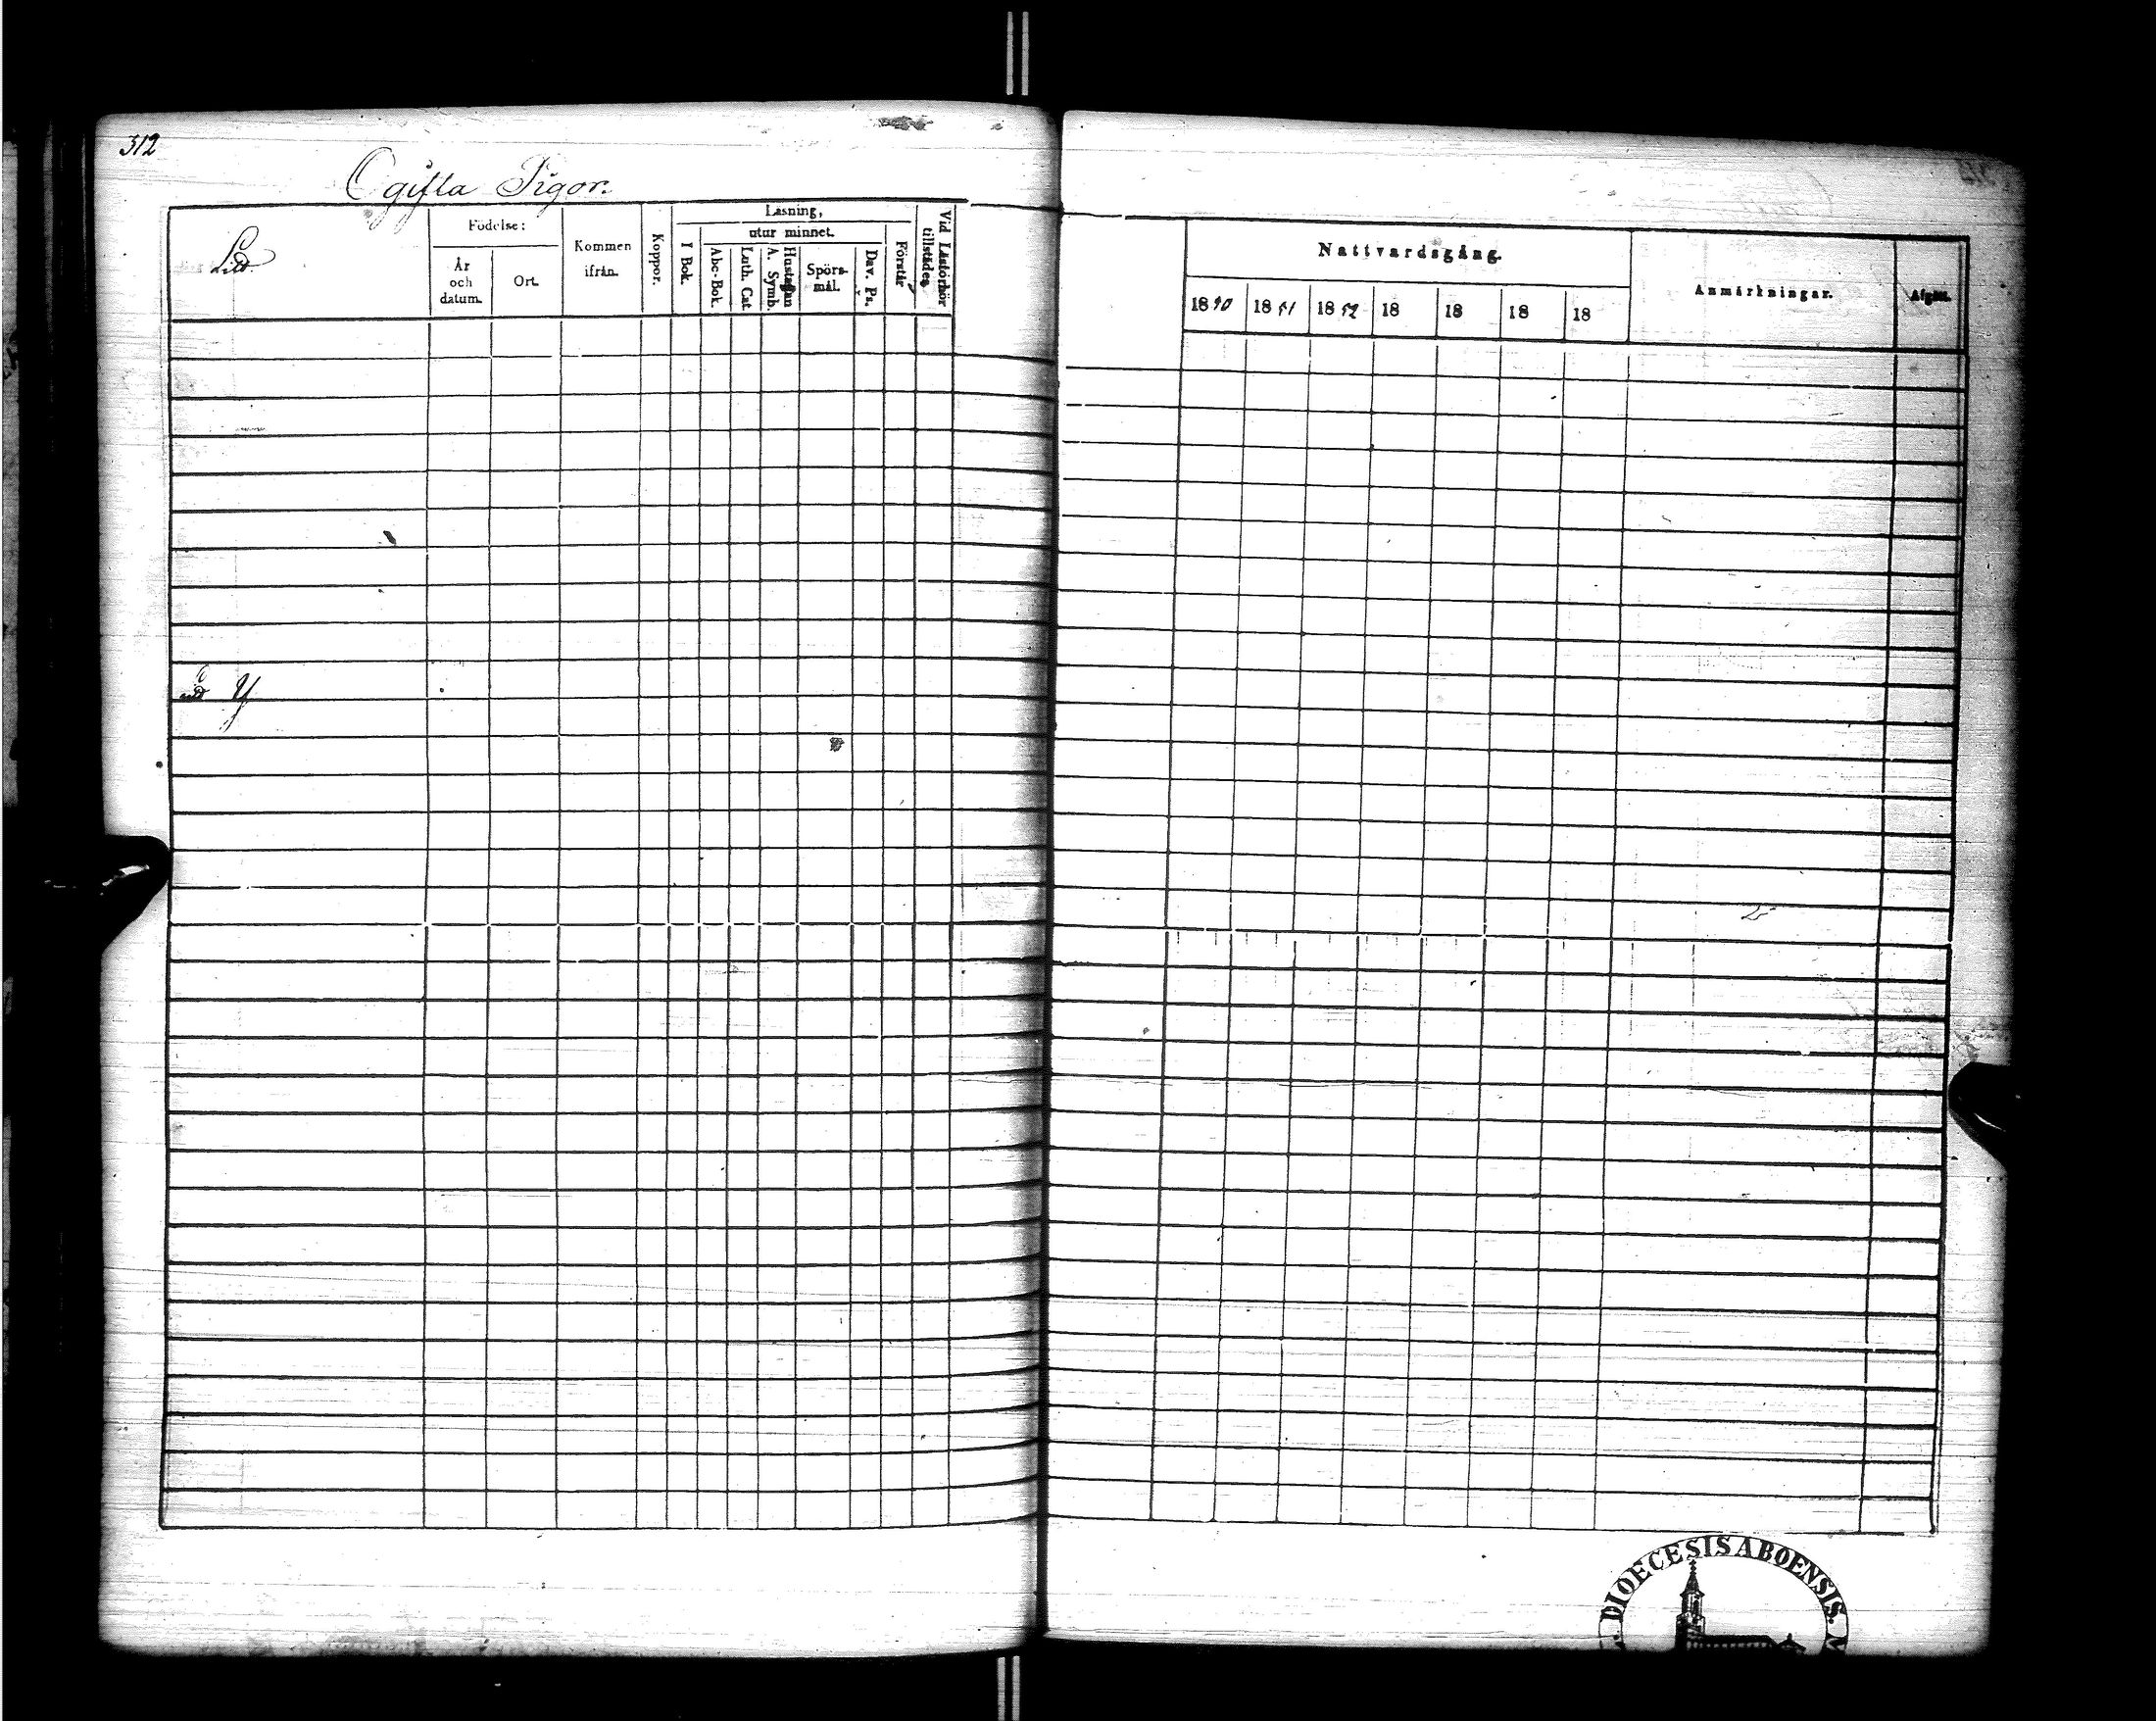 312
Ogifta Pigor.
Litt.
Födelse:
År och datum.
Ort.
Kommen ifrån.
Koppor.
Läsning,
utur minnet.
I Bok.
Abc-Bok.
Luth. Cat.
Hustaflan A. Symb.
Spörs-mål.
Dav. Ps.
Förstår
Vid Läsförhör tillstädes.
Y
Nattvardsgång.
1850
1851
1852
18
18
18
18
Anmärkningar.
Afgått.
DIOECESIS ABOENSIS.